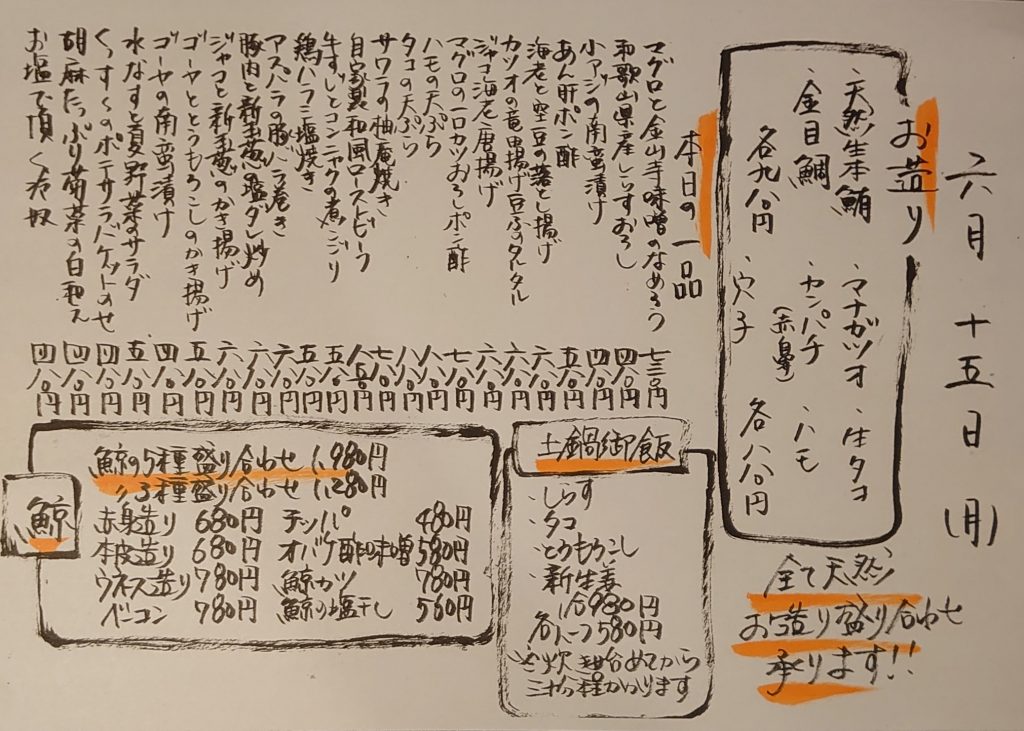 六月十五日(月)
お造り
・天然生本鮪
・金目鯛
各九八〇円
・マナガツオ ・生タコ
・カンパチ(赤鼻) ・ハモ
・穴子 各八八〇円
全て天然
お造り盛り合わせ
承ります!!
本日の一品
マグロと金山寺味噌のなめろう 七三〇円
和歌山県産しらすおろし 四八〇円
小アジの南蛮漬け 四八〇円
あん肝ポン酢 五八〇円
海老と空豆の落とし揚げ 六八〇円
カツオの竜田揚げ豆ふのタルタル 六八〇円
ジャコ海老唐揚げ 六八〇円
マグロの一口カツおろしポン酢 七八〇円
ハモの天ぷら 八八〇円
タコの天ぷら 八八〇円
サワラの柚庵焼き 七八〇円
自家製和風ローストビーフ 八五〇円
牛すじとコンニャクの煮こごり 五八〇円
鶏ハラミ塩焼き 五八〇円
アスパラの豚バラ巻き 六八〇円
豚肉と新玉葱の塩ダレ炒め 六八〇円
ジャコと新玉葱のかき揚げ 六八〇円
ゴーヤととうもろこしのかき揚げ 五八〇円
ゴーヤの南蛮漬け 四八〇円
水なすと夏野菜のサラダ 五八〇円
ポテサラバケットのせ 四八〇円
胡麻たっぷり菊菜の白和え 四八〇円
お塩で頂く冷奴 四八〇円
土鍋御飯
・しらす
・タコ
・とうもろこし
・新生姜
1合980円
各ハーフ580円
※炊き始めてから
三十分程かかります
鯨
鯨の5種盛り合わせ 1,980円
〃3種盛り合わせ 1,280円
赤身造り 680円 チッパ 480円
本皮造り 680円 オバケ酢味噌 580円
ウネス造り 780円 鯨カツ 780円
ベーコン 780円 鯨の塩干し 560円